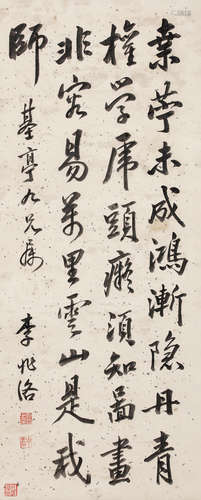 桒苧未成鴻漸隱丹青
權学虎頭癡須知啚畫
非容易萬里雲山是我
師
基亭九兄屬
李兆洛